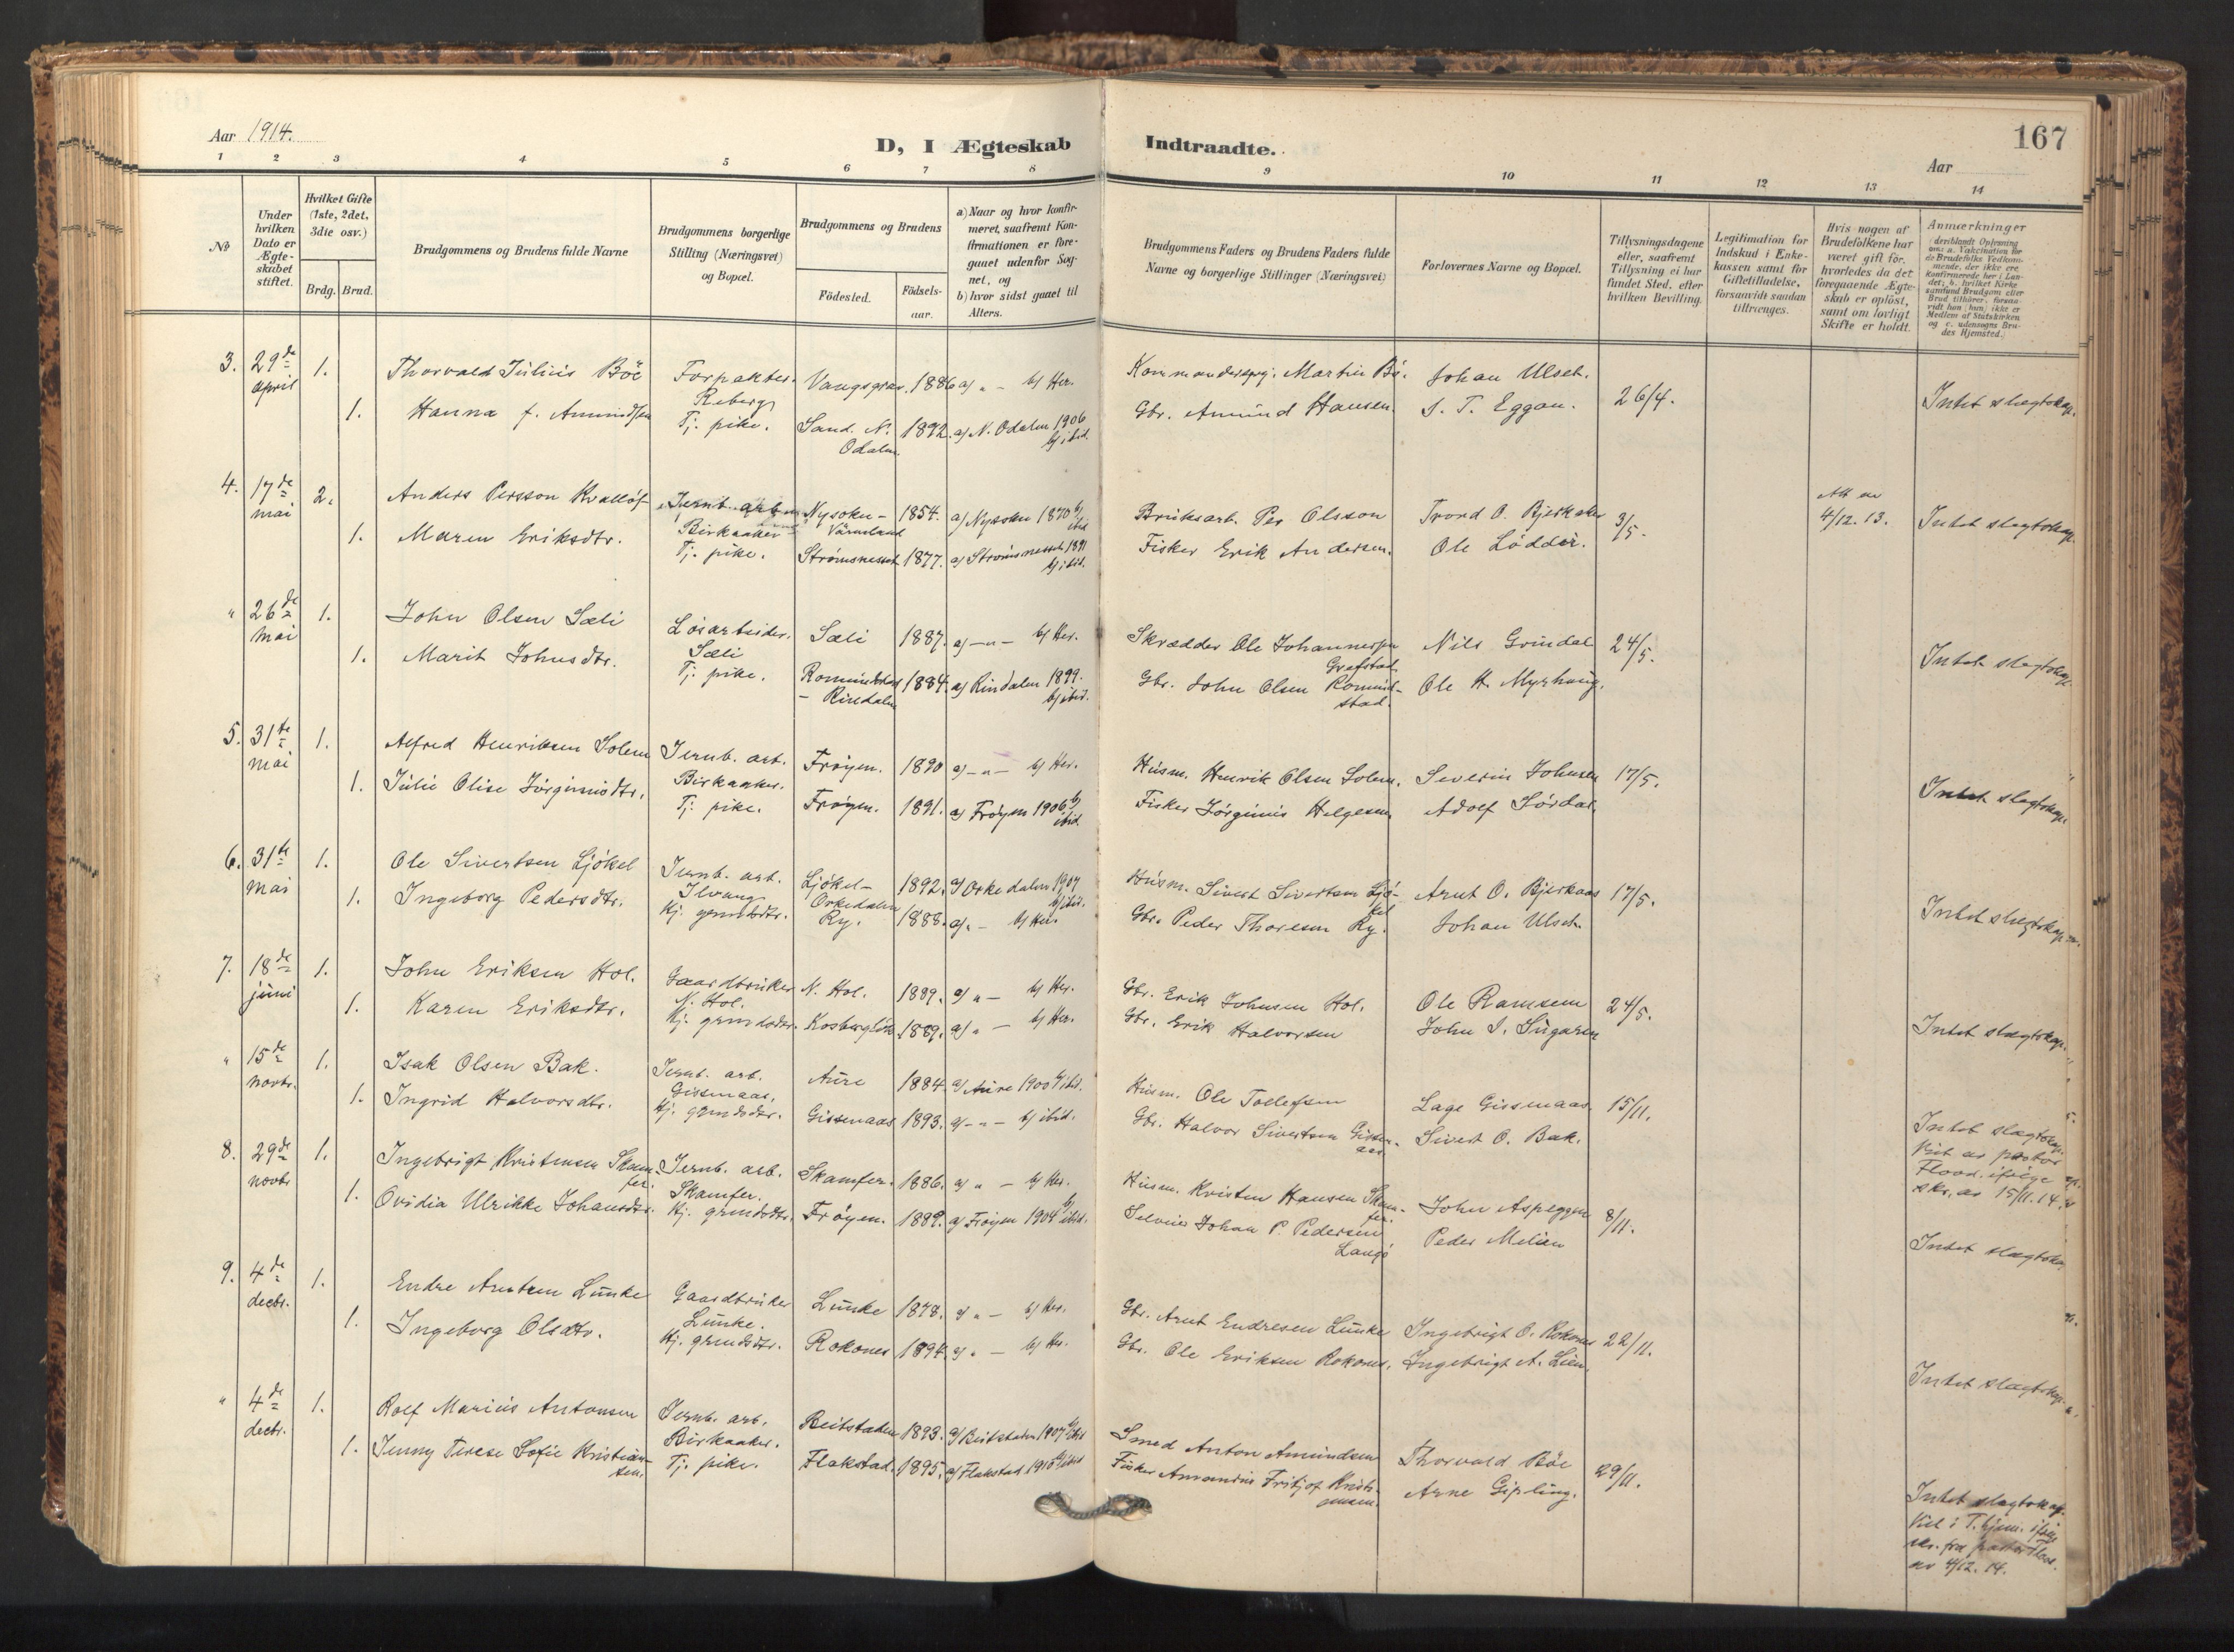 167
Aar 1914.
D, I Ægteskab Indtraadte.
Aar
1 2 3 4 5 6 7 8 9 10 11 12 13 14
№
Under hvilken Dato er Ægteskabet stiftet.
Hvilket Gifte (1ste, 2det, 3die osv.)
Brdg. Brud.
Brudgommens og Brudens fulde Navne
Brudgommens borgerlige Stilling (Næringsvei) og Bopæl.
Brudgommens og Brudens
Fødested.
Fødselsaar.
a) Naar og hvor konfirmeret, saafremt Konfirmationen er foregaaet udenfor Sognet, og
b) hvor sidst gaaet til Alters.
Brudgommens Faders og Brudens Faders fulde Navne og borgerlige Stillinger (Næringsvei)
Forlovernes Navne og Bopæl.
Tillysningsdagene eller, saafremt Tillysning ei har fundet Sted, efter hvilken Bevilling.
Legitimation for Indskud i Enkekassen samt for Giftetilladelse, forsaavidt saadan tiltrænges.
Hvis nogen af Brudefolkene har været gift før, hvorledes da det foregaaende Ægteskab er opløst, samt om lovligt Skifte er holdt.
Anmærkninger
(deriblandt Oplysning om: a. Vaccination for de Brudefolks Vedkommende, der ikke ere konfirmerede her i Landet; b. hvilket Kirkesamfund Brudgom eller Brud tilhører, forsaavidt han (hun) ikke er Medlem af Statskirken og c. udensogns Brudes Hjemsted.)
3. 29de april 1. Thorvald Julius Böe Forpakter. Reberg Vangsgrav. 1886 a) „ - b) Her. Martin Bö. Johan Ulset. 26/4. Intet slegtskap.
1. Hanna f. Amundsen Tj. pike. Sand. N. Odalen. 1892. a) N. Odalen 1906 b) ibid. Gbr. Amund Hansen. S. T. Eggan.
4. 17de mai 2. Anders Persson Kvallöf Jernb. arb. Birkaaker Nysoku - Värmland 1854. a) Nysoku 1870 b) ibid Bruksarb. Per Olsson Trond O. Bjerkaker 3/5. 4/12. 13. Intet slegtskap.
1. Maren Eriksdtr. Tj. pike. Strömsnesset 1877. a) Strömsnesset 1891 b) ibid. Fisker Erik Andersen. Ole Löddör.
„ 26de mai 1. John Olsen Sæli Lösarbeider. Sæli Sæli 1887. a) - „ - b) Her. Skrædder Ole Johannessen Grefstad Nils Grindal 24/5. Intet slegtskap.
1. Marit Johnsdtr. Tj. pike. Romundstad - Rindalen 1884. a) Rindalen 1899. b) ibid. Gbr. John Olsen Romundstad. Ole H. Myrhaug.
5. 31te mai 1. Alfred Henriksen Solem Jernb. arb. Birkaaker. Fröyen. 1890 a) - „ - b) Her. Husm. Henrik Olsen Solem. Severin Johnsen 17/5. Intet slegtskap.
1. Julie Olise Jörginusdtr. Tj. pike. Fröyen. 1891. a) Fröyen 1906 b) ibid. Fisker Jörginus Helgesen Adolf Sördal.
6. 31te mai 1. Ole Sivertsen Ljökel Jernb. arb. Ilvang Ljökel - Orkedalen 1892. a) Orkedalen 1907 b) ibid. Husm. Sivert Sivertsen Ljökel Arnt O. Bjerkaas 17/5. Intet slegtskap.
1. Ingeborg Pedersdtr. Hj. grmdsdtr. Ry. 1888. a) „ - b) Her. Gbr. Peder Thoresen Ry. Johan Ulset.
7. 18de juni 1. John Eriksen Hol. Gaardbruker N. Hol. N. Hol. 1889. a) „ - b) Her. Gbr. Erik Johnsen Hol. Ole Ramsem 24/5. Intet slegtskap.
1. Karen Eriksdtr. Hj. grmdsdtr. Kosberglök 1889. a) „ - b) Her. Gbr. Erik Halvorsen John S. Sugaren
„ 15de novbr. 1. Isak Olsen Bak. Jernb. arb. Gissenaas. Aure 1884 a) Aure 1900 b) ibid. Husm. Ole Tollefsen Lage Gissenaas 15/11. Intet slegtskap. Viet av pastor Flood, ifölge skr. av 15/11. 14.
1. Ingrid Halvorsdtr. Hj. grmdsdtr. Gissenaas 1893. a) - „ - b) ibid. Gbr. Halvor Sivertsen Gissenaas Sivert O. Bak.
8. 29de novbr 1. Ingebrigt Kristensen Skamfer. Jernb. arb. Skamfer. Skamfer. 1886. a) „ - b) Her. Husm. Kristen Hansen Skamfer. John Aspeggen 8/11. Intet slegtskap
1. Ovidia Ulrikke Johansdtr. Hj. grmdsdtr. Fröyen. 1889. a) Fröyen 1904 b) ibid. Selveier Johan P. Pedersen Langö Peder Melien
9. 4de decbr. 1. Endre Arntsen Lunke Gaardbruker Lunke. Lunke 1878. a) „ - b) Her. Gbr. Arnt Endresen Lunke Ingebrigt O. Rokones 22/11. Intet slegtskap.
1. Ingeborg Olsdtr. Hj. grmdsdtr. Rokones 1894. a) „ - b) Her. Gbr. Ole Eriksen Rokones. Ingebrigt A. Lien.
„ 4de decbr. 1. Rolf Marius Antonsen Jernb. arb. Birkaaker. Beitstaden 1893. a) Beitstaden 1907 b) ibid Smed Anton Amundsen Thorvald Böe 29/11. Intet slegtskap. Viet i T.hjem. ifölge skr. fra pastor Flood av 4/12. 14.
1. Jenny Terese Sofie Kristiansen. Tj. pike. Flakstad. 1895. a) Flakstad 1910 b) ibid Fisker Amandus Fritjof Kristiansen. Arne Gipling.